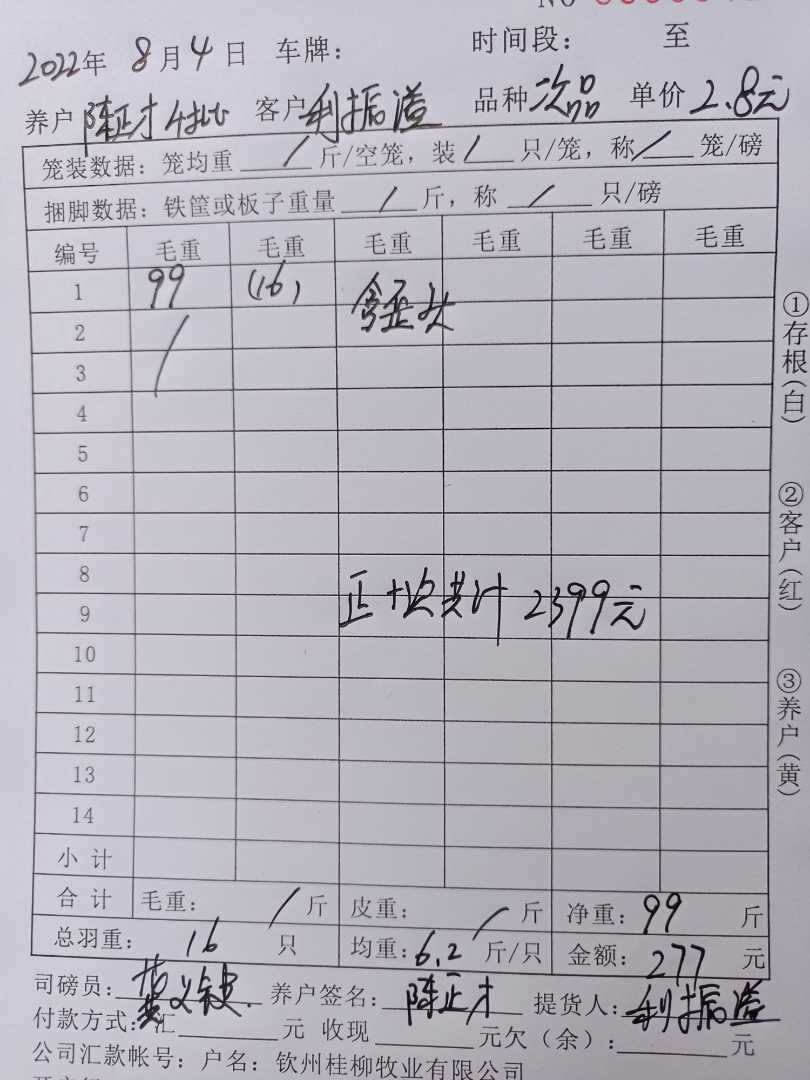 2022年 8月4日 车牌： 时间段： 至
养户 陈正才4批 客户 利振溢 品种 次品 单价 2.8元
笼装数据：笼均重 / 斤/空笼，装 / 只/笼，称 / 笼/磅
捆脚数据：铁筐或板子重量 / 斤，称 / 只/磅
编号 毛重 毛重 毛重 毛重 毛重 毛重
1 99 (16) 含歪头
2 /
3
4
5
6
7
8
正+次共计 2399元
9
10
11
12
13
14
小计
合计 毛重： / 斤 皮重： / 斤 净重：99 斤
总羽重： 16 只 均重：6.2 斤/只 金额：277 元
司磅员： 养户签名：陈正才 提货人：利振溢
付款方式：汇 元 收现 元欠（余）： 元
公司汇款帐号：户名：钦州桂柳牧业有限公司
①存根（白）
②客户（红）
③养户（黄）